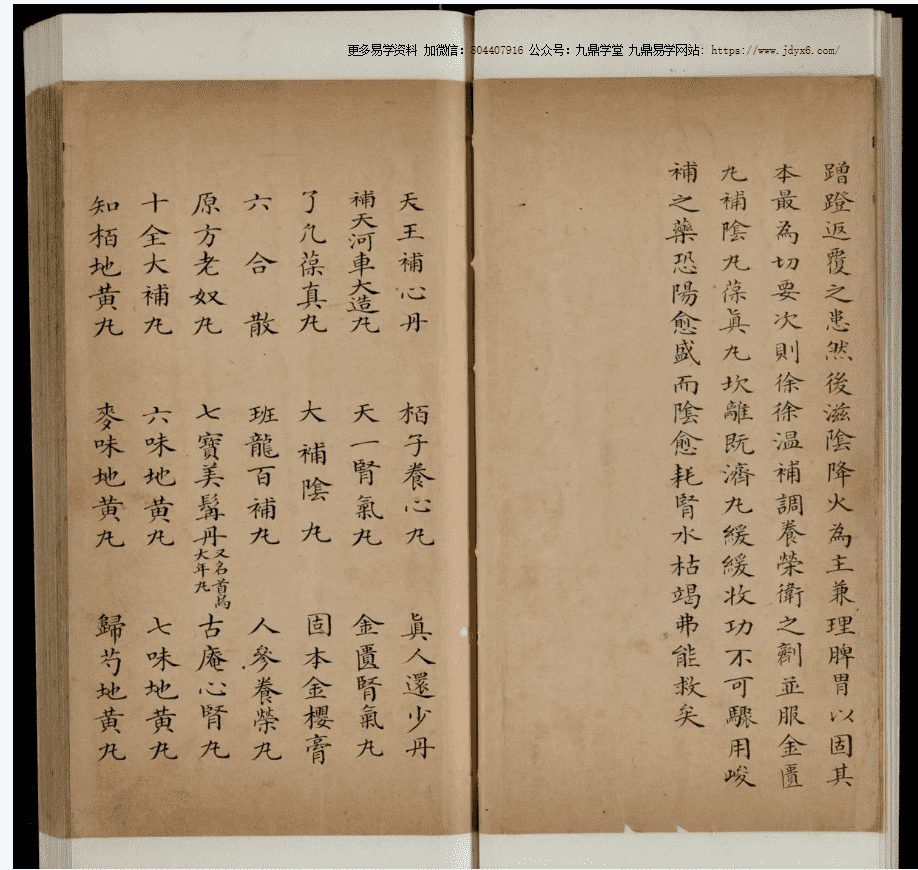 更多易学资料 加微信：804407916 公众号：九鼎学堂 九鼎易学网站：https://www.jdyx6.com/
蹭蹬返覆之患然後滋陰降火為主兼理脾胃以固其
本最為切要次則徐徐温補調養榮衛之劑並服金匱
丸補陰丸葆眞丸坎離既濟丸緩緩收功不可驟用峻
補之藥恐陽愈盛而陰愈耗腎水枯竭弗能救矣
天王補心丹 栢子養心丸 眞人還少丹
補天河車大造丸 天一腎氣丸 金匱腎氣丸
了凡葆真丸 大補陰丸 固本金櫻膏
六合散 班龍百補丸 人參養榮丸
原方老奴丸 七寶美髯丹又名首烏大年丸 古庵心腎丸
十全大補丸 六味地黄丸 七味地黄丸
知栢地黄丸 麥味地黄丸 歸芍地黄丸